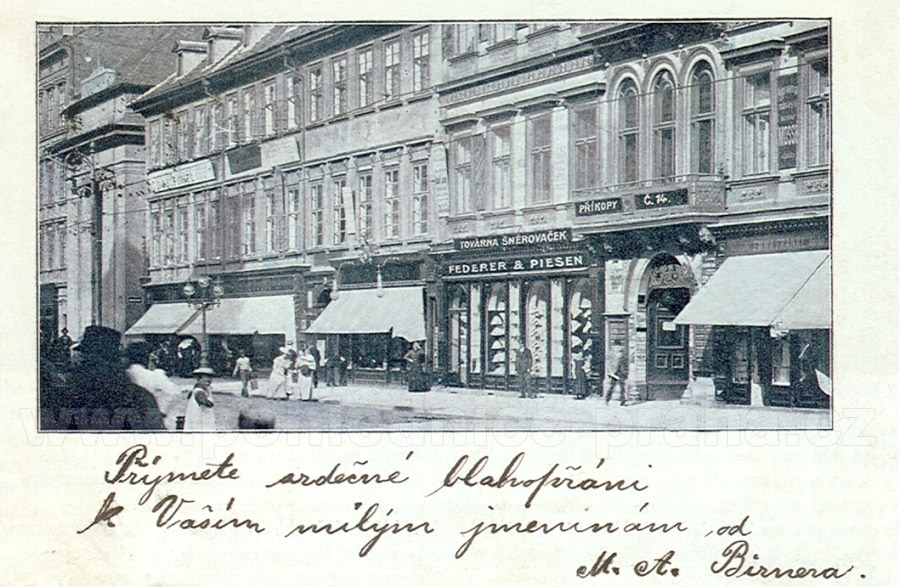 PŘÍKOPY
Č. 14.
TOVÁRNA ŠNĚROVAČEK
FEDERER & PIESEN
Přijmete srdečné blahopřáni
k Vaším milým jmeninám, od
M. A. Birnera.